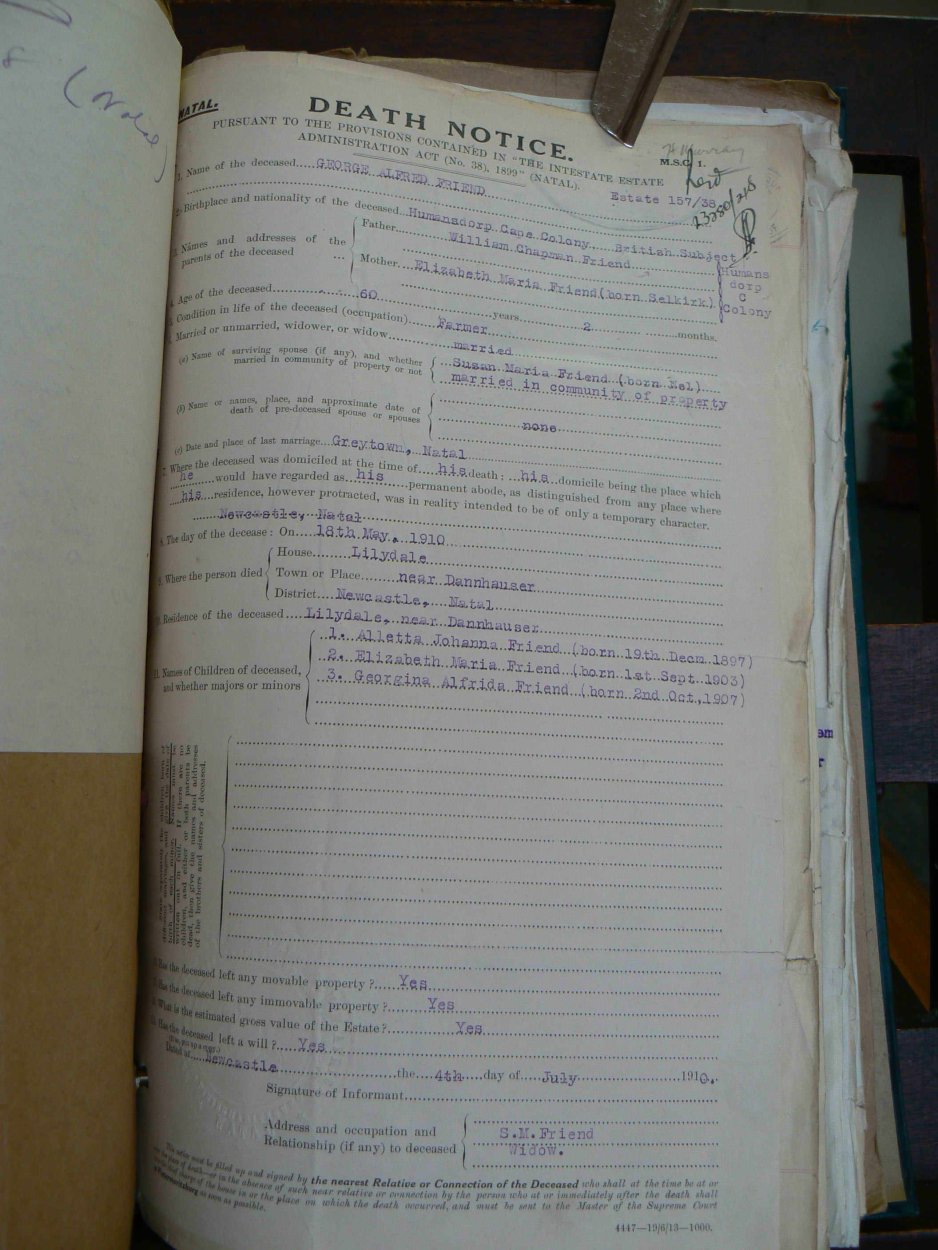 NATAL.
DEATH NOTICE.
PURSUANT TO THE PROVISIONS CONTAINED IN "THE INTESTATE ESTATE
ADMINISTRATION ACT (No. 38), 1899" (NATAL).
M.S.C. 1.
1. Name of the deceased....GEORGE ALFRED FRIEND
Estate 157/38
13280/218
2. Birthplace and nationality of the deceased..Humansdorp Cape Colony...British Subject
3. Names and addresses of the parents of the deceased ...
Father...William Chapman Friend
Mother...Elizabeth Maria Friend(born Selkirk)
Humans
dorp
C
Colony
4. Age of the deceased.....60.....years.....2.....months.
5. Condition in life of the deceased (occupation)....Farmer
6. Married or unmarried, widower, or widow.....married
(a) Name of surviving spouse (if any), and whether married in community of property or not
Susan Maria Friend (born Nel)
married in community of property
(b) Name or names, place, and approximate date of death of pre-deceased spouse or spouses
none
(c) Date and place of last marriage...Greytown, Natal
7. Where the deceased was domiciled at the time of...his death; ..his..domicile being the place which
he would have regarded as..his....permanent abode, as distinguished from any place where
his..residence, however protracted, was in reality intended to be of only a temporary character.
Newcastle, Natal
8. The day of the decease: On....18th May, 1910
9. Where the person died
House......Lilydale
Town or Place......near Dannhauser
District...Newcastle, Natal
10. Residence of the deceased...Lilydale, near Dannhauser
11. Names of Children of deceased, and whether majors or minors
1. Alletta Johanna Friend (born 19th Decm 1897)
2. Elizabeth Maria Friend (born 1st Sept 1903)
3. Georgina Alfrida Friend (born 2nd Oct, 1907)
written out in full. If there are no
children, and either or both parents be
dead, then give the names and addresses
of the brothers and sisters of deceased.
Has the deceased left any movable property?....Yes
Has the deceased left any immovable property?....Yes
What is the estimated gross value of the Estate?....Yes
Has the deceased left a will?...Yes
Dated at...Newcastle...the...4th...day of...July...1910.
Signature of Informant
Address and occupation and
Relationship (if any) to deceased
S.M.Friend
Widow.
This notice must be filled up and signed by the nearest Relative or Connection of the Deceased who shall at the time be at or
near the place of death—or in the absence of such near relative or connection by the person who at or immediately after the death shall
have charge of the house in or the place on which the death occurred, and must be sent to the Master of the Supreme Court
Pietermaritzburg as soon as possible.
4447—19/6/13—1000.